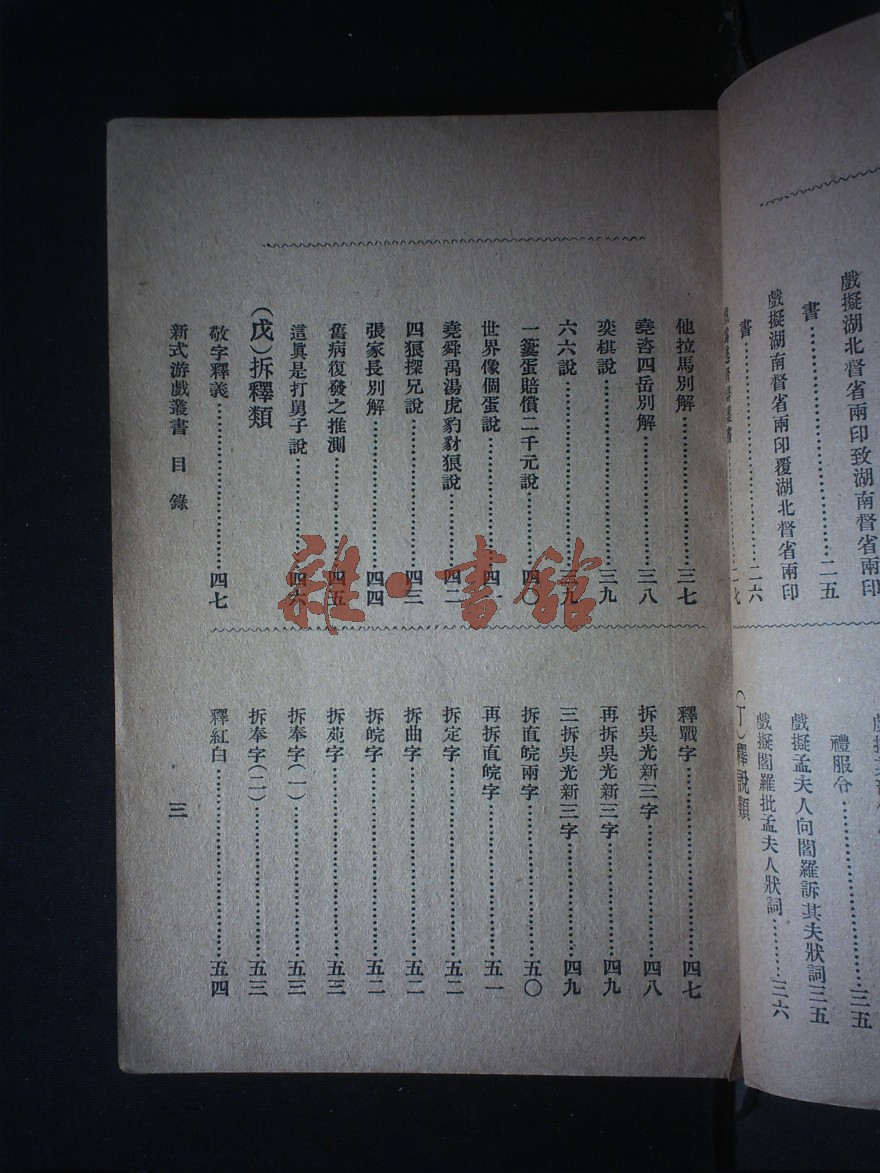 戲擬湖北督省兩印致湖南督省兩印
書…………二五
戲擬湖南督省兩印覆湖北督省兩印
書…………二六
禮服令…………三五
戲擬孟夫人向閻羅訴其夫狀詞三五
戲擬閻羅批孟夫人狀詞…………三六
(丁)釋說類
他拉馬別解…………三七
堯咨四岳別解…………三八
奕棋說…………三九
六六說…………三九
一簍蛋賠償二千元說…………四〇
世界像個蛋說…………四一
堯舜禹湯虎豹豺狼說…………四二
四狼探兄說…………四三
張家長別解…………四四
舊病復發之推測…………四五
這眞是打舅子說…………四六
(戊)拆釋類
敬字釋義…………四七
釋戰字…………四七
拆吳光新三字…………四八
再拆吳光新三字…………四九
三拆吳光新三字…………四九
拆直皖兩字…………五〇
再拆直皖字…………五一
拆定字…………五二
拆曲字…………五二
拆皖字…………五二
拆苑字…………五三
拆奉字(一)…………五三
拆奉字(二)…………五三
釋紅白…………五四
新式游戲叢書 目錄
三
雜·書館